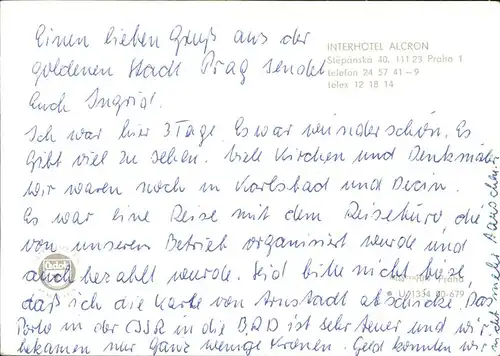 Einen lieben Gruß aus der
goldenen Stadt Prag sendet
Euch Ingrid.
INTERHOTEL ALCRON
Štěpánská 40, 111 23 Praha 1
telefon 24 57 41-9
telex 12 18 14
Ich war hier 3 Tage. Es war wunderschön. Es
gibt viel zu sehen. Viele Kirchen und Denkmäler
Wir waren noch in Karlsbad und Decin.
Es war eine Reise mit dem Reisebüro, die
von unserem Betrieb organisiert wurde und
auch bezahlt wurde. Seid bitte nicht böse,
daß ich die Karte von Arnstadt abschicke. Das
Porto in der ČSSR in die BRD ist sehr teuer und wir
bekamen nur ganz wenige Kronen. Geld konnten wir
nicht mehr
Praha